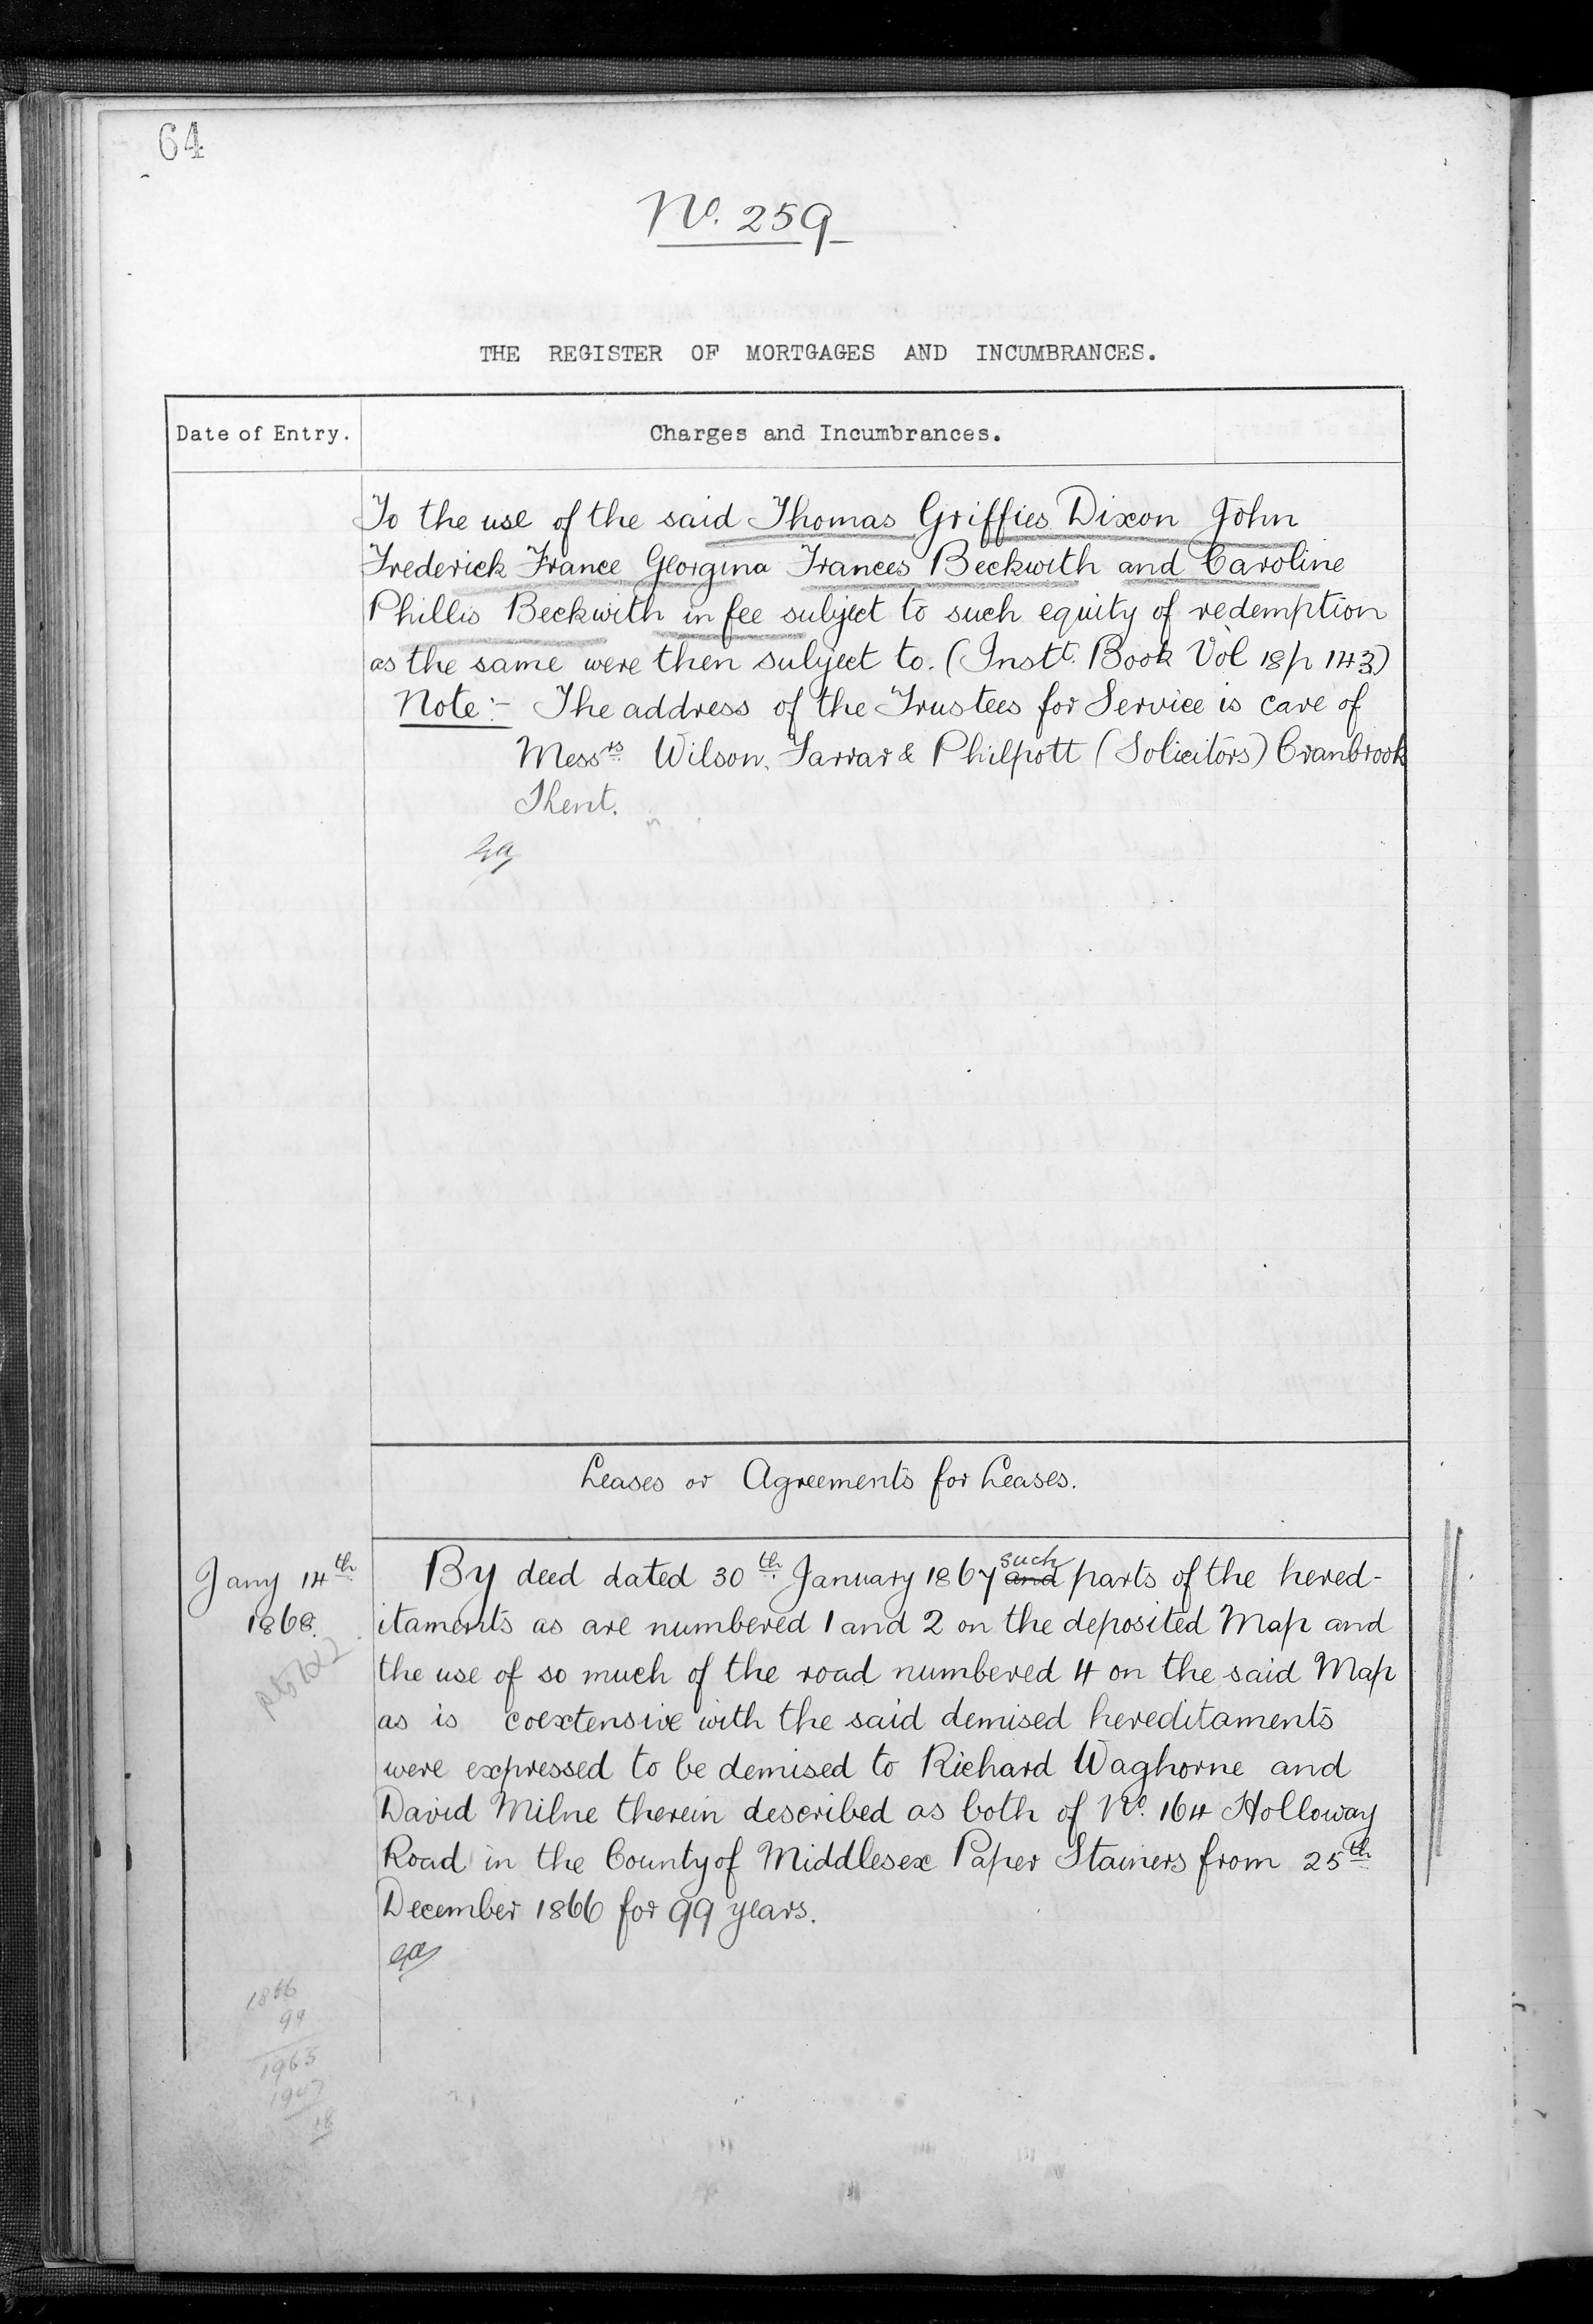 64
No. 259
THE REGISTER OF MORTGAGES AND INCUMBRANCES.
Date of Entry.
Charges and Incumbrances.
To the use of the said Thomas Griffies Dixon John
Frederick France Georgina Frances Beckwith and Caroline
Phillis Beckwith in fee subject to such equity of redemption
as the same were then subject to. (Instt. Book Vol 18 p 143)
Note:- The address of the Trustees for Service is care of
Messrs Wilson, Farrar & Philpott (Solicitors) Cranbrook
Kent.
Leases or Agreements for Leases.
Jany 14th
1868.
By deed dated 30th January 1867 such and parts of the hered-
itaments as are numbered 1 and 2 on the deposited Map and
the use of so much of the road numbered 4 on the said Map
as is coextensive with the said demised hereditaments
were expressed to be demised to Richard Waghorne and
David Milne therein described as both of No. 164 Holloway
Road in the County of Middlesex Paper Stainers from 25th
December 1866 for 99 years.
1866
99
1965
1907
58